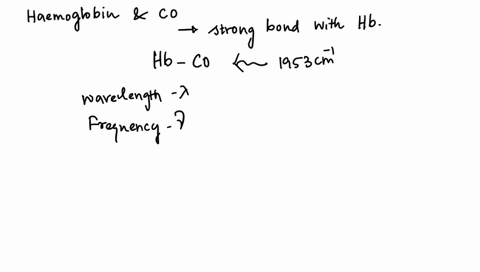 Haemoglobin & CO
→ strong bond with Hb.
Hb - CO ← 1953 cm⁻¹
wavelength - λ
Frequency - ν̅